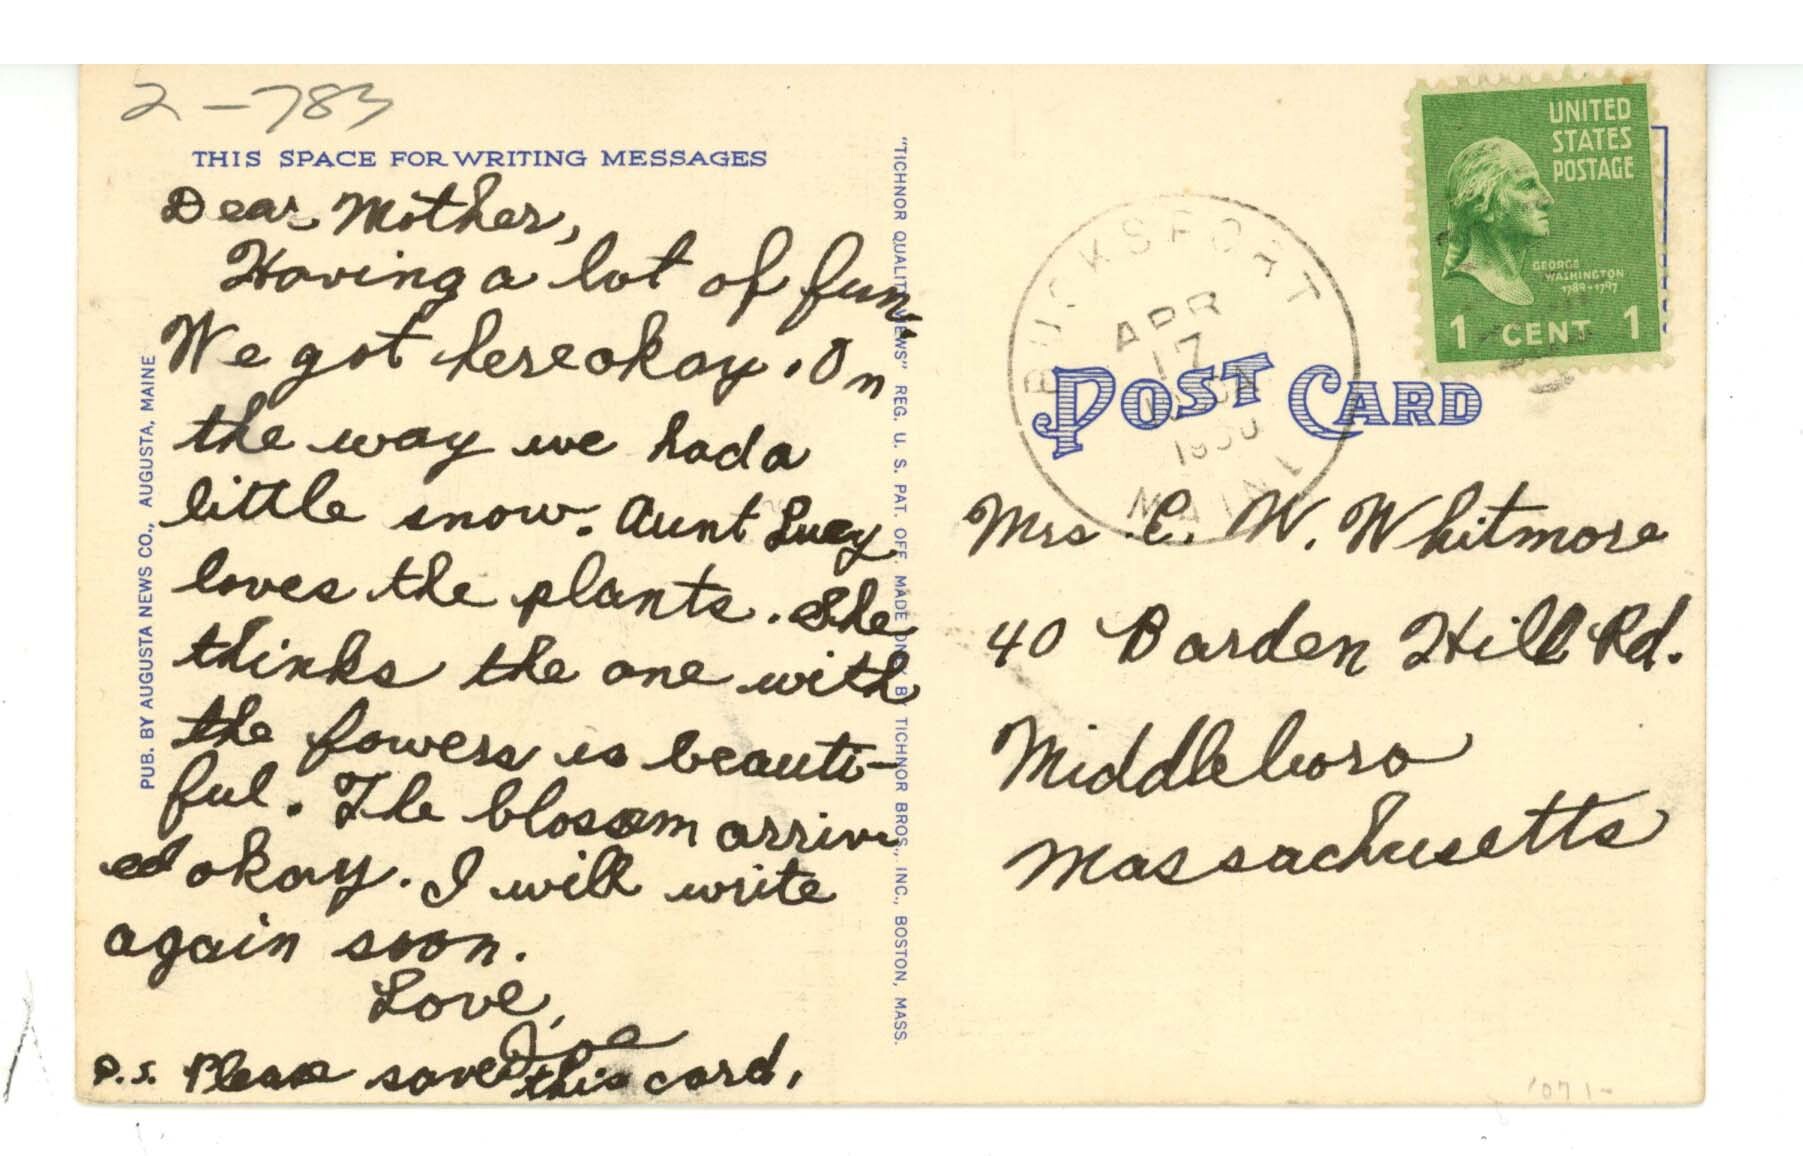 2-783
THIS SPACE FOR WRITING MESSAGES
Dear Mother,
Having a lot of fun.
We got here okay. On
the way we had a
little snow. Aunt Lucy
loves the plants. She
thinks the one with
the fowers is beauti-
ful. The blossom arriv
ed okay. I will write
again soon.
Love,
Joe
P.S. Please save this card.
PUB. BY AUGUSTA NEWS CO., AUGUSTA, MAINE
"TICHNOR QUALITY VIEWS" REG. U. S. PAT. OFF. MADE ONLY BY TICHNOR BROS., INC., BOSTON, MASS.
UNITED
STATES
POSTAGE
GEORGE
WASHINGTON
1789-1797
1 CENT 1
BUCKSPORT
APR
17
1950
MAINE
POST CARD
Mrs. E. W. Whitmore
40 Barden Hill Rd.
Middleboro
Massachusetts